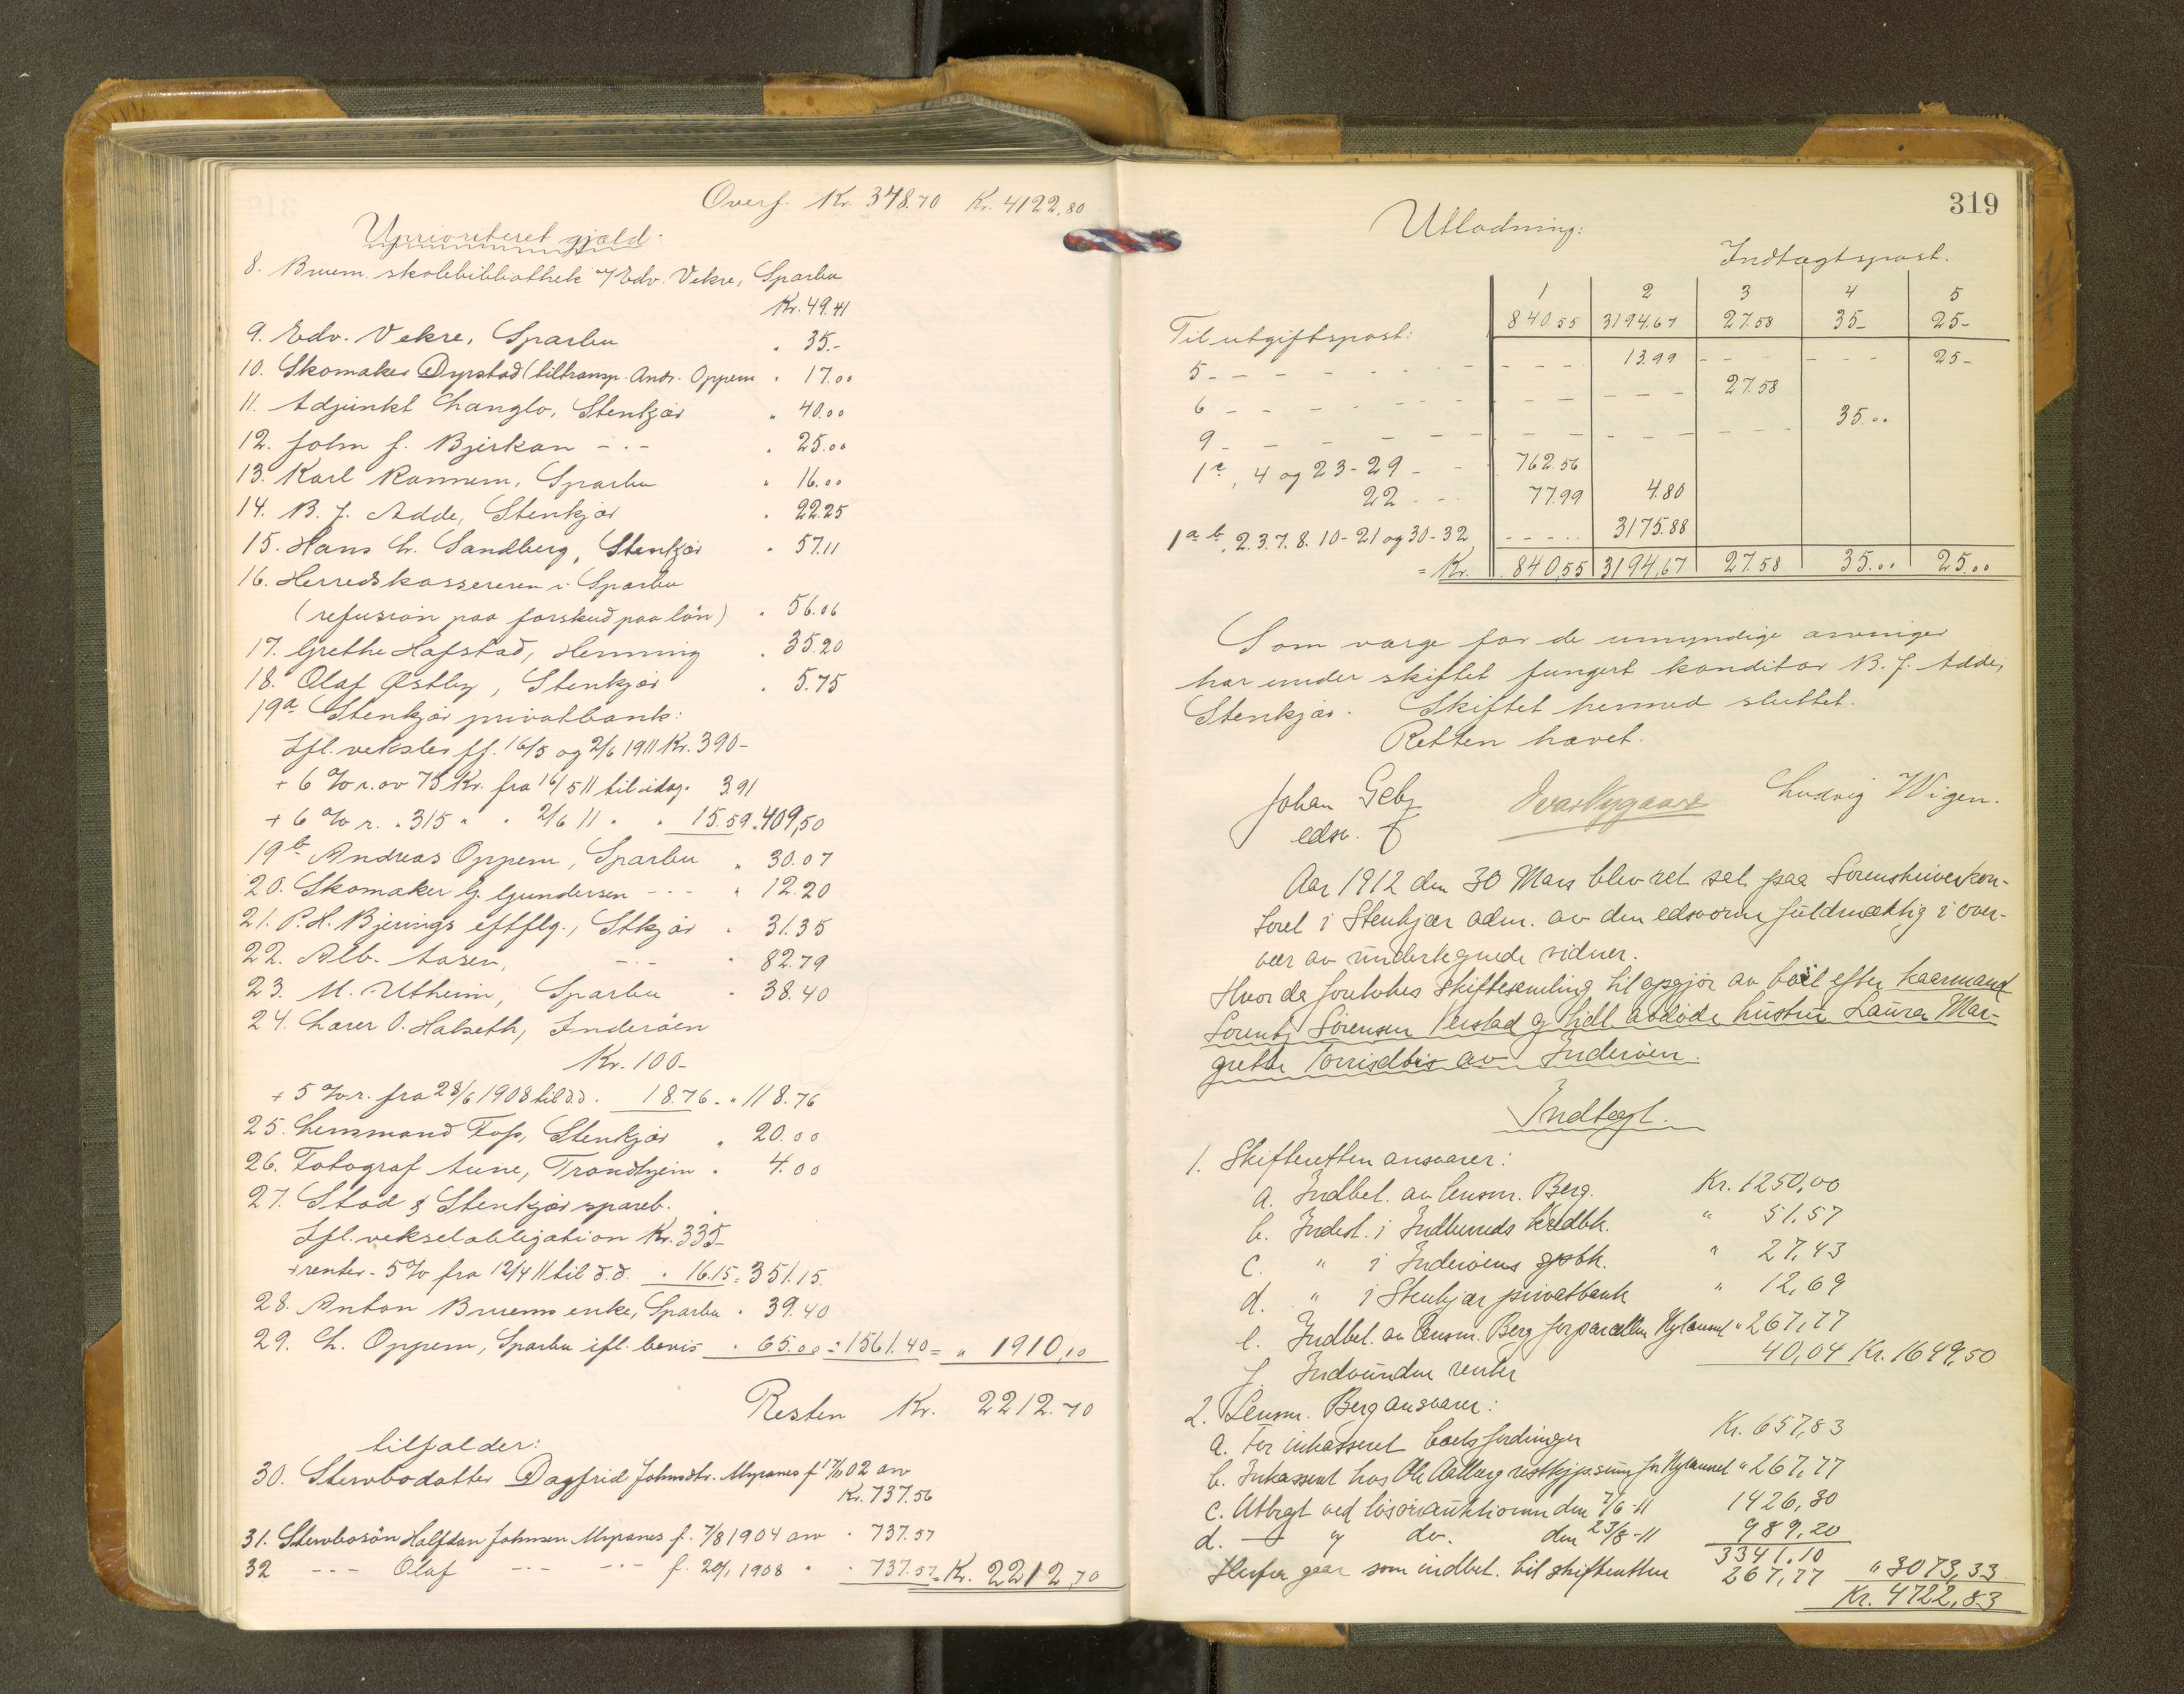 Overf. Kr. 348.70 Kr. 4122,80
Uprioriteret gjæld.
8. Bruem. skolebibliothek v/ Edv. Vekre, Sparbu
Kr. 49.41
9. Edv. Vekre, Sparbu " 35.-
10. Skomaker Dyrstad (tiltransp. Andr. Oppem " 17.00
11. Adjunkt Langlo, Stenkjær " 40.00
12. John J. Bjerkan -"- " 25.00
13. Karl Rannem, Sparbu " 16.00
14. B. J. Adde, Stenkjær " 22.25
15. Hans L. Sandberg, Stenkjær " 57.11
16. Herredskassereren i Sparbu
(refusion paa forskud paa løn) " 56.06
17. Grethe Hafstad, Henning " 35.20
18. Olaf Østby, Stenkjær " 5.75
19a Stenkjær privatbank:
Ifl. veksler ff. 16/5 og 2/6 1911 Kr. 390-
+ 6 % r. av 75 Kr. fra 16/5 11 til idag. 3.91
+ 6 % r. " 315 " " 2/6 11 " " 15.59 " 409,50
19b Andreas Oppem, Sparbu " 30.07
20. Skomaker G. Gundersen -"- " 12.20
21. P. H. Bjerings eftflg., Stkjær " 31.35
22. Alb. Aasen, -"- " 82.79
23. M. Utheim, Sparbu " 38.40
24. Lærer O. Halseth, Inderøen
Kr. 100-
+ 5 % r. fra 28/6 1908 til d.d. 18.76 - " 118.76
25. Lensmand Foss, Stenkjær " 20.00
26. Fotograf Aune, Trondhjem " 4.00
27. Stod & Stenkjær spareb.
Ifl. vekselobligation Kr. 335-
+ renter - 5 % fra 12/4 11 til d.d. " 16.15 = 351.15
28. Anton Bruems enke, Sparbu " 39.40
29. L. Oppem, Sparbu ifl. bevis " 65.00 = 1561.40 = " 1910,10
Resten Kr. 2212.70
tilfalder:
30. Stervbodatter Dagfrid Johnsdtr. Myranes f 17/10 02 arv
Kr. 737.56
31. Stervbosøn Halfdan Johnsen Myranes f. 7/8 1904 arv " 737.57
32 -"- Olaf -"- -"- f. 20/1 1908 " " 737.57 = Kr. 2212,70
319
Utlodning:
Indtægtspost.
1 2 3 4 5
Til utgiftspost: 840.55 3194.67 27.58 35- 25-
5 - - - - 13.99 - - - 25-
6 - - - - 27.58
9 - - - - 35.00
1c, 4 og 23-29 - - 762.56
22 - - 77.99 4.80
1a b, 2.3.7.8. 10-21 og 30-32 - - - 3175.88
= Kr. 840,55 3194,67 27.58 35.00 25.00
Som værge for de umyndige arvinger
har under skiftet fungert konditor B. J. Adde,
Stenkjær. Skiftet hermed sluttet.
Retten hævet.
Johan Geby Ivar Nygaard Ludvig Wigen.
edsv. f
Aar 1912 den 30 Mars blev ret sat paa Sorenskriverkon-
toret i Stenkjær adm. av den edsvorne fuldmægtig i over-
vær av undertegnede vidner.
Hvor da foretokes skiftesamling til opgjør av boet efter kaarmand
Sorents Sørensen Verstad og tidl. avdøde hustru Laura Mar-
grethe Torrisdtr av Inderøen.
Indtægt.
1. Skifteretten ansvarer:
a. Indbet. av lensm. Berg. Kr. 1250,00
b. Indest. i Indherreds kredbk. " 51,57
c. " i Inderøens spbk. " 27,43
d. " i Stenkjær privatbank " 12,69
e. Indbet. av lensm. Berg for parcellen Nylaunet " 267,77
f. Indvundne renter 40,04 Kr. 1649,50
2. Lensm. Berg ansvarer:
a. For inkasseret boets fordringer Kr. 657,83
b. Inkasseret hos Ole Aalberg restkjøpsum for Nylaunet " 267,77
c. Utbragt ved løsøreauktionen den 7/6 -11 1426,30
d. - " - do. den 23/8 -11 989,20
3341.10
Herfra gaar som indbet. til skifteretten 267,77 " 3073,33
Kr. 4722,83